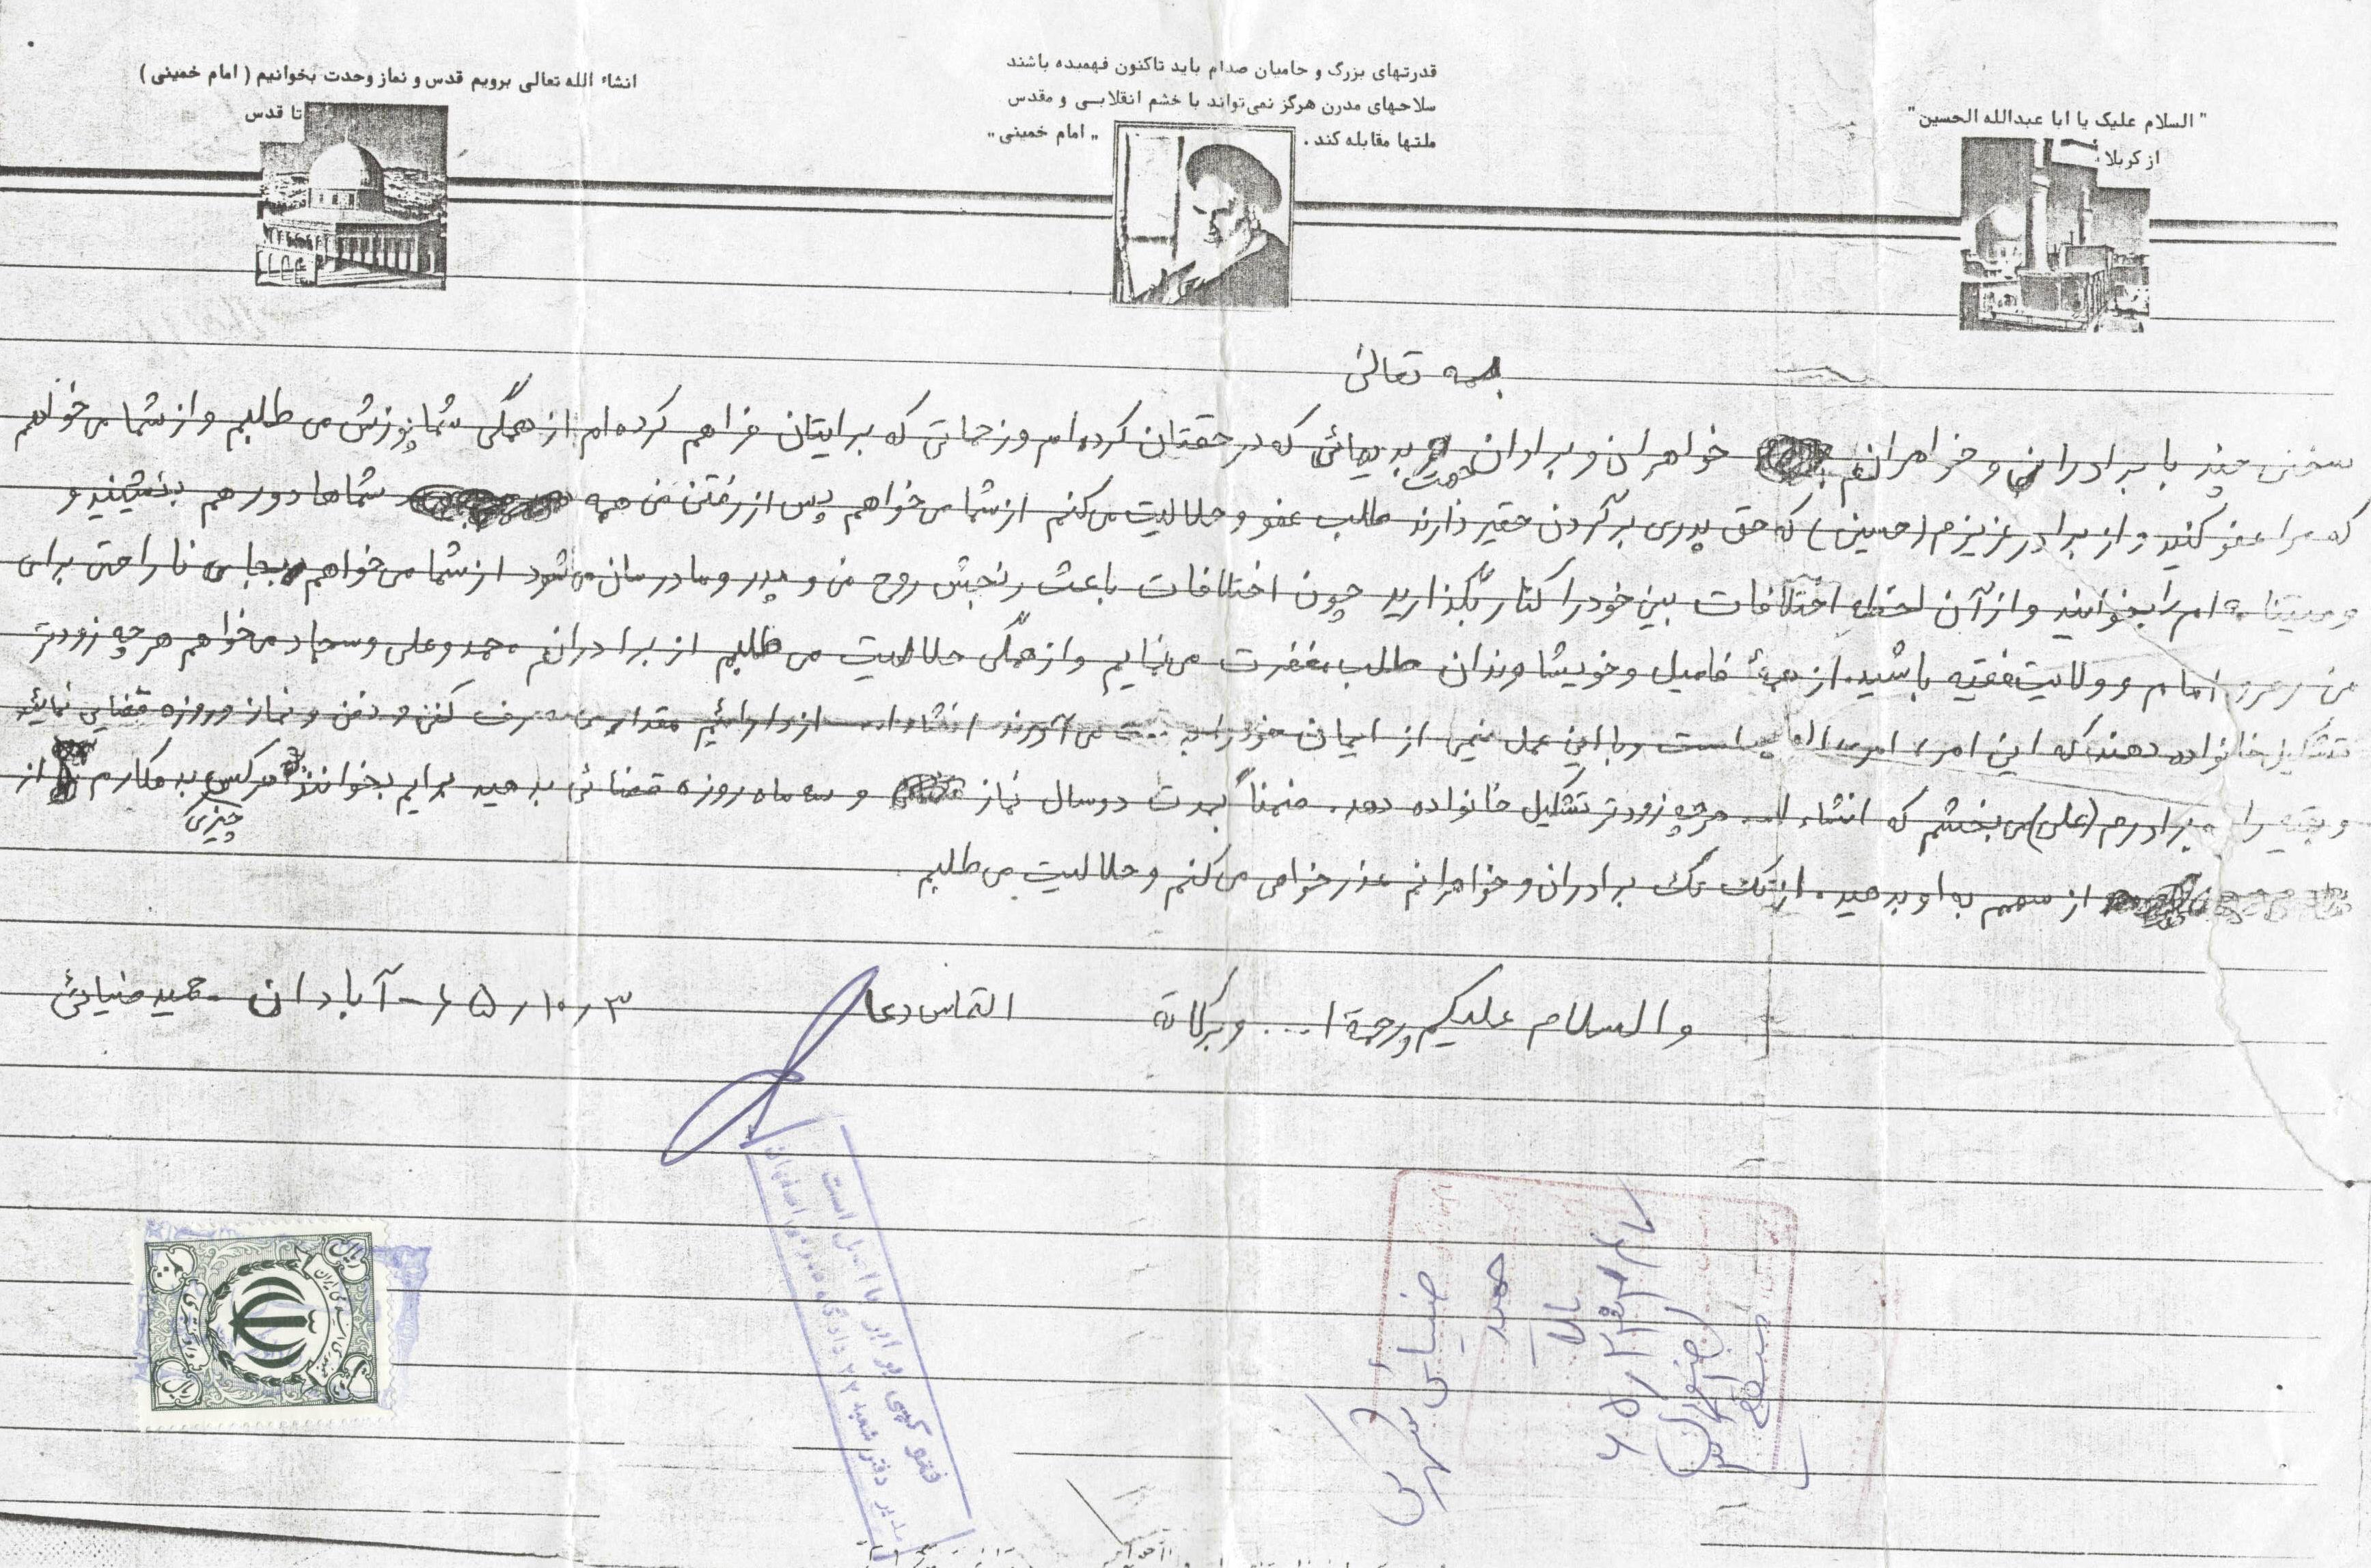 "السلام علیک یا ابا عبدالله الحسین"
از کربلا
قدرتهای بزرگ و حامیان صدام باید تاکنون فهمیده باشند
سلاحهای مدرن هرگز نمی‌تواند با خشم انقلابی و مقدس
ملتها مقابله کند. "امام خمینی"
انشاء الله تعالی برویم قدس و نماز وحدت بخوانیم (امام خمینی)
تا قدس
بسمه تعالی
سخنی چند با برادران و خواهرانم خواهران و برادران بدیهائی که در حقتان کرده‌ام و زحماتی که برایتان فراهم کرده‌ام از همگی شما پوزش می طلبم و از شما می‌خواهم
که مرا عفو کنید و از برادر عزیزم (حسین) که حق پدری بر گردن حقیر دارند طلب عفو و حلالیت می‌کنم از شما می‌خواهم پس از رفتن من همه شماها دور هم بنشینید و
وصیتنامه ام را بخوانید و از آن لحظه اختلافات بین خود را کنار بگذارید چون اختلافات باعث رنجش روح من و پدر و مادرمان می‌شود از شما می‌خواهم بجای ناراحتی برای
من امام و ولایت فقیه باشید. از همهٔ فامیل و خویشاوندان طلب مغفرت می‌نمایم و از همگی حلالیت می طلبم از برادرانم محمد و علی و سجاد می‌خواهم هر چه زودتر
تشکیل خانواده دهند که این امر، امری الهی است و با این عمل نیمی از ایمان خود را بدست می‌آورند انشاءا... از دارائیم مقداری صرف کفن و دفن و نماز و روزه قضایی نمائید
و بقیه را به برادرم (علی) می‌بخشم که انشاء ا... هر چه زودتر تشکیل خانواده دهد. ضمناً بمدت دو سال نماز و سه ماه روزه قضائی بدهید برایم بخوانند هر کس بدهکارم از
چیزی
از سهمم به او بدهید. از تک تک برادران و خواهرانم عذرخواهی می‌کنم و حلالیت می‌طلبم
والسلام علیکم و رحمة ا... وبرکاته التماس دعا ۳ر۱۰ر۶۵ - آبادان - حمید ضیائی
فتو کپی برابر با اصل است
مدیر دفتر شعبه ۲۲ دادگاه اصفهان
ضیائی شهرکی
حمید